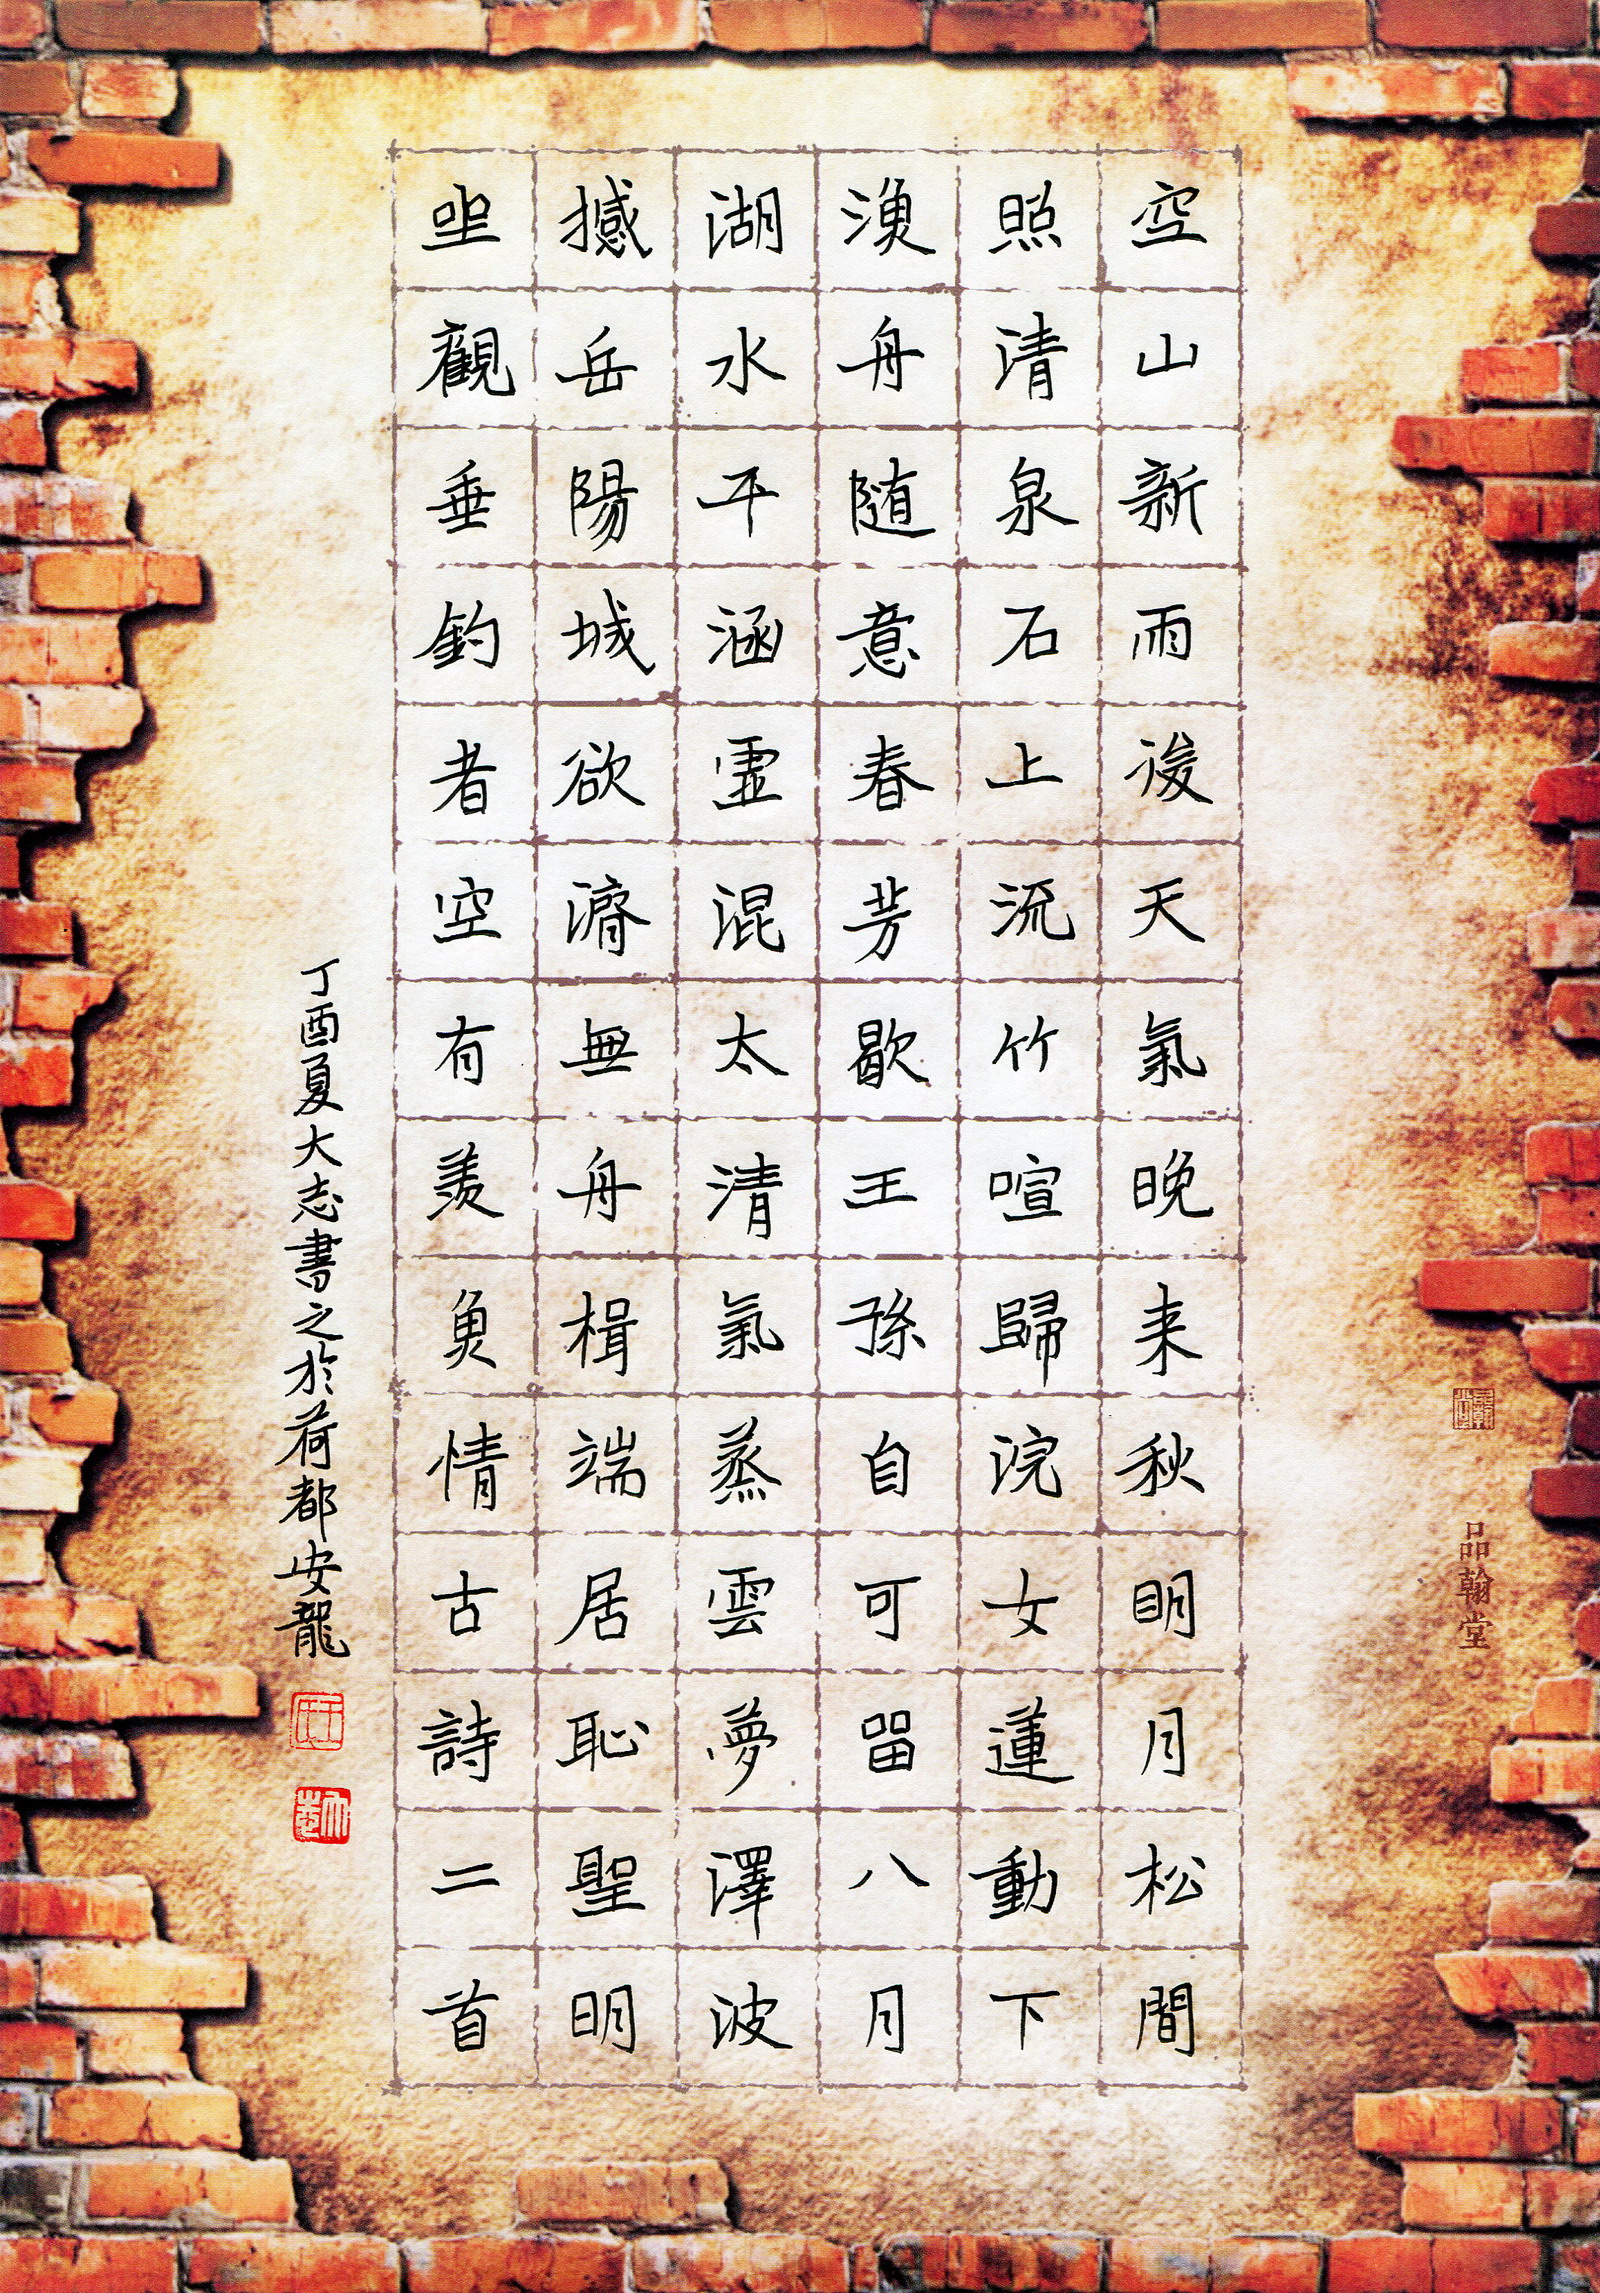 空山新雨後天氣晚来秋明月松間
照清泉石上流竹喧歸浣女蓮動下
漁舟随意春芳歇王孫自可留八月
湖水平涵虛混太清氣蒸雲夢澤波
撼岳陽城欲濟無舟楫端居恥聖明
坐觀垂釣者空有羨魚情古詩二首
丁酉夏大志書之於荷都安龍
品翰堂